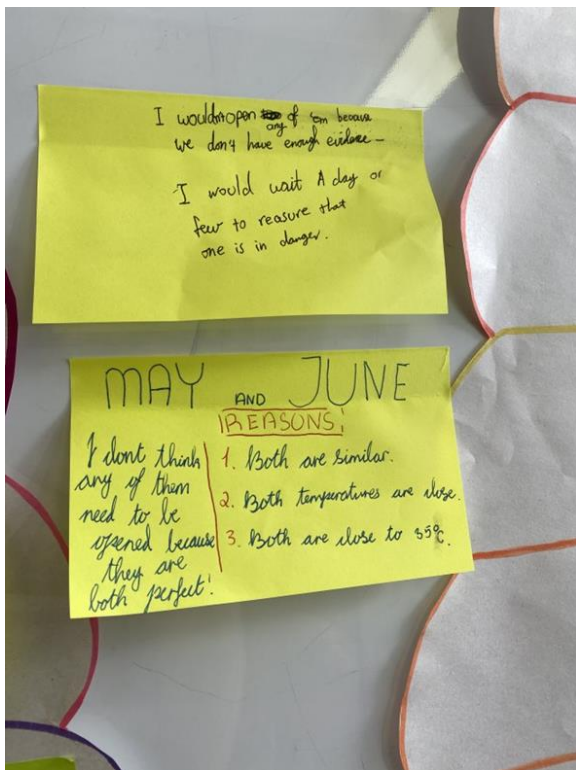 I wouldn't open any of 'em because
we don't have enough evidence
I would wait A day or
few to reasure that
one is in danger.
MAY AND JUNE
REASONS
I dont think
any of them
need to be
opened because
they are
both perfect!
1. Both are similar.
2. Both temperatures are close.
3. Both are close to 35°C.